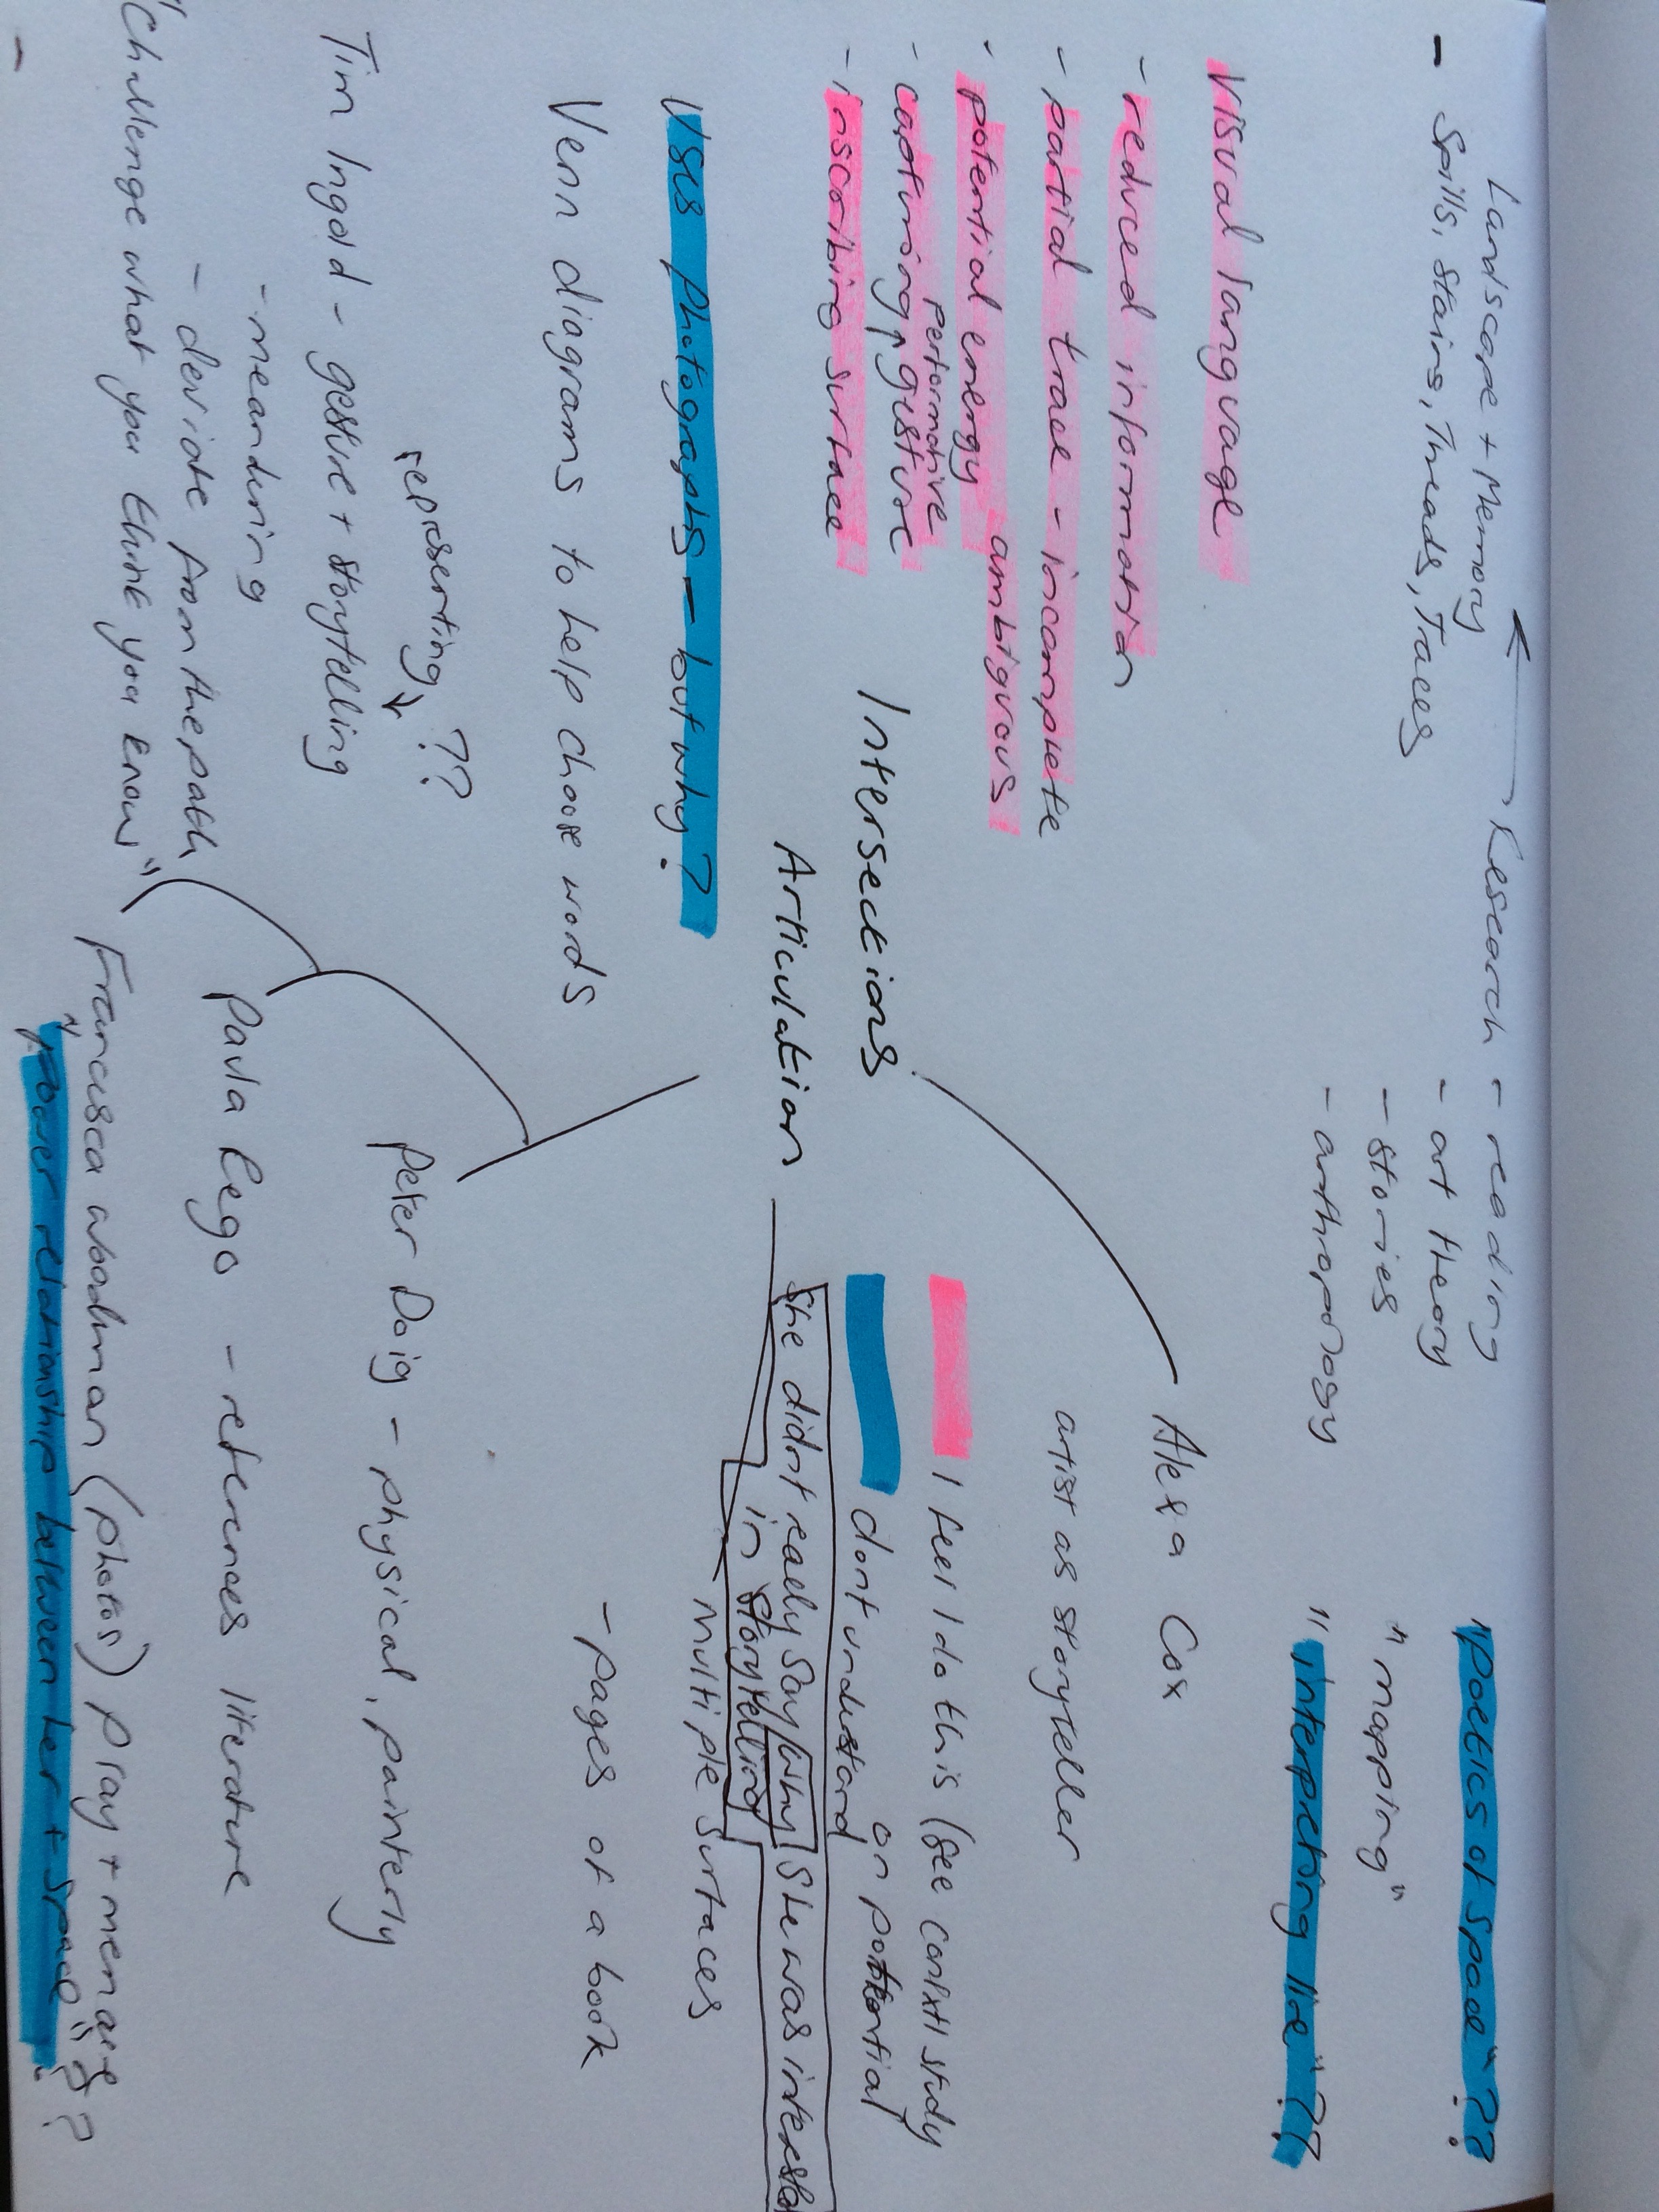 Landscape + Memory
- Spills, Stains, Threads, Traces
Research - reading
- art theory
- stories
- anthropology
"poetics of space"??
"mapping"
"interpreting line"??
Visual language
- reduced information
- partial trace - incomplete
- potential energy ambiguous
performative
- capturing gesture
- inscribing surface
Intersections
Articulation
Alexa Cox
artist as storyteller
I feel I do this (see context study
on potential
dont understand
She didnt really say why she was interested
in storytelling
- multiple surfaces
- pages of a book
Uses photographs - but why?
Venn diagrams to help choose words
representing ??
Tim Ingold - gesture + storytelling
- meandering
- deviate from the path
"Challenge what you think you know"
Peter Doig - physical, painterly
Paula Rego - references literature
Francesca woodman (photos) play + menace??
"power relationship between her + space"?
-